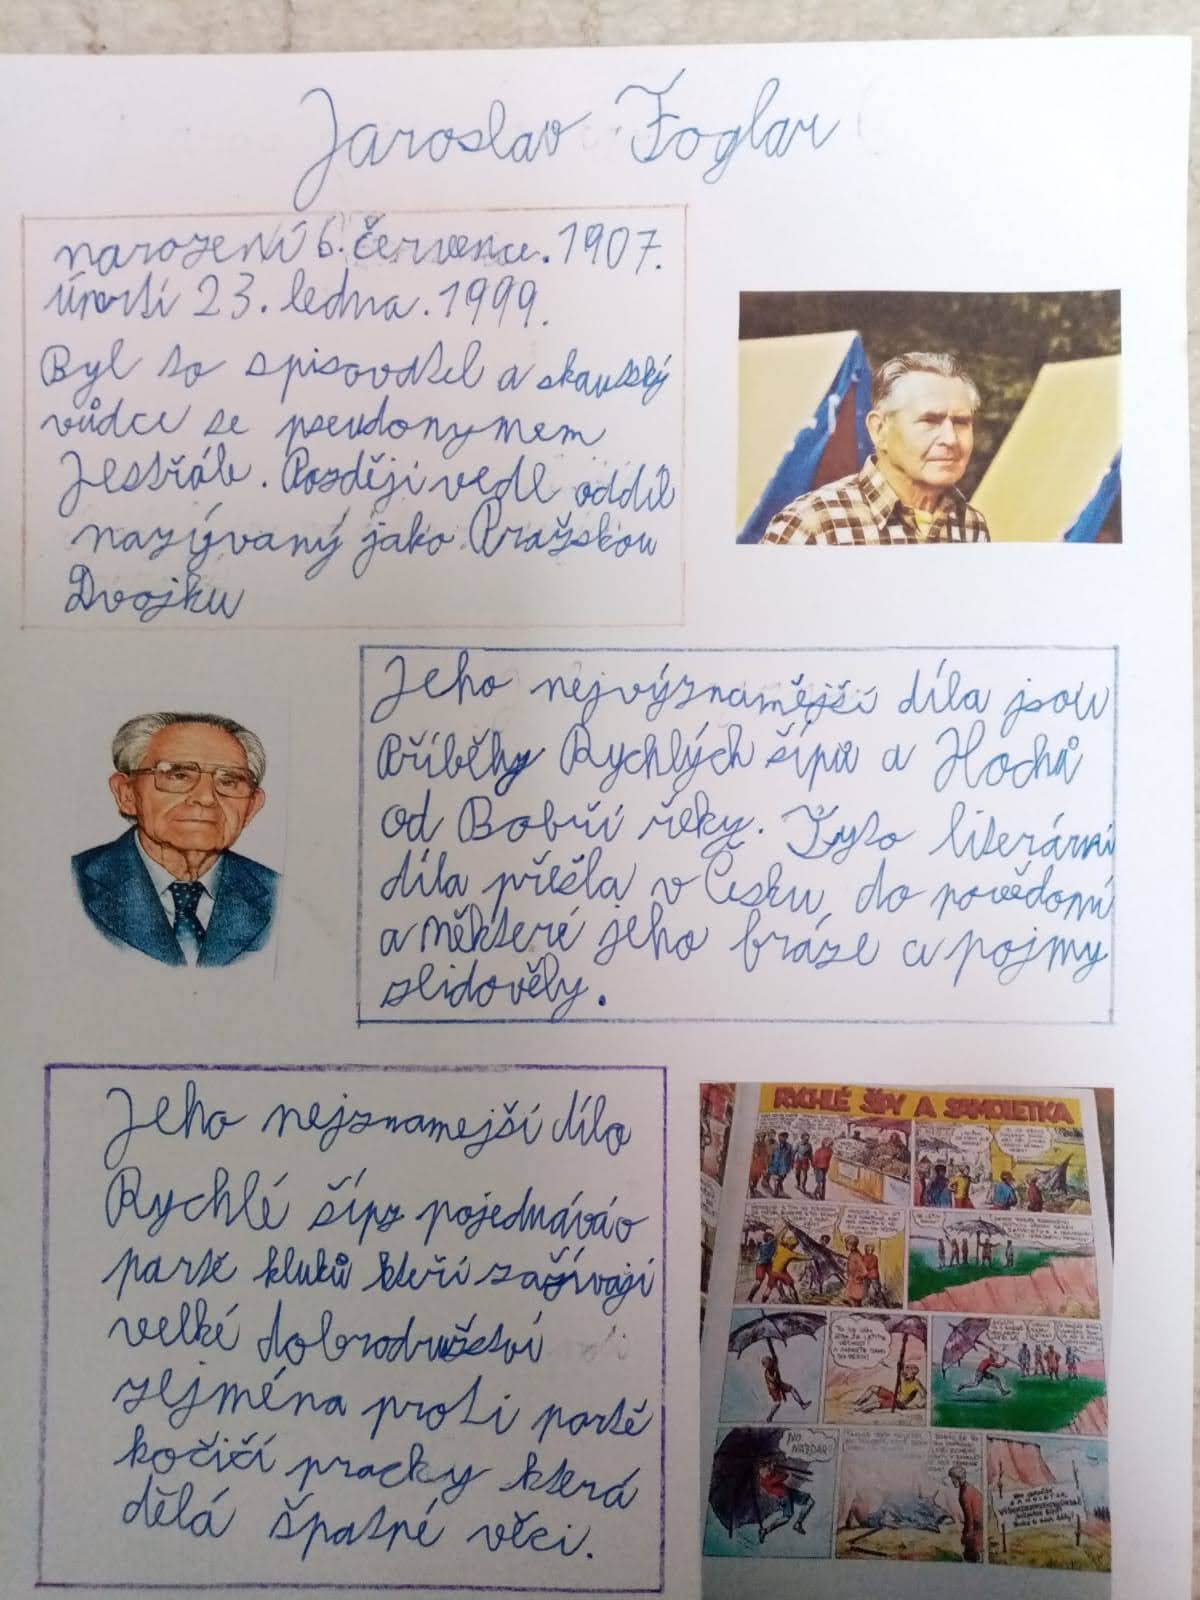 Jaroslav Foglar
narození 6. července. 1907.
Úmrtí 23. ledna. 1999.
Byl to spisovatel a skautský
vůdce se pseudonymem
Jestřáb. Později vedl oddíl
nazývaný jako Pražskou
Dvojku
Jeho nejvýznamější díla jsou
Příběhy Rychlých šípů a Hochů
od Bobří řeky. Tyto literární
díla přešla v Česku do povědomí
a některé jeho fráze a pojmy
zlidověly.
Jeho nejznamejší dílo
Rychlé šípy pojednává o
partě kluků kteří zažívají
velké dobrodružství
zejména proti partě
kočičí pracky která
dělá špatné věci.
RYCHLÉ ŠÍPY A SAMOLETKA
NO NAZDAR!